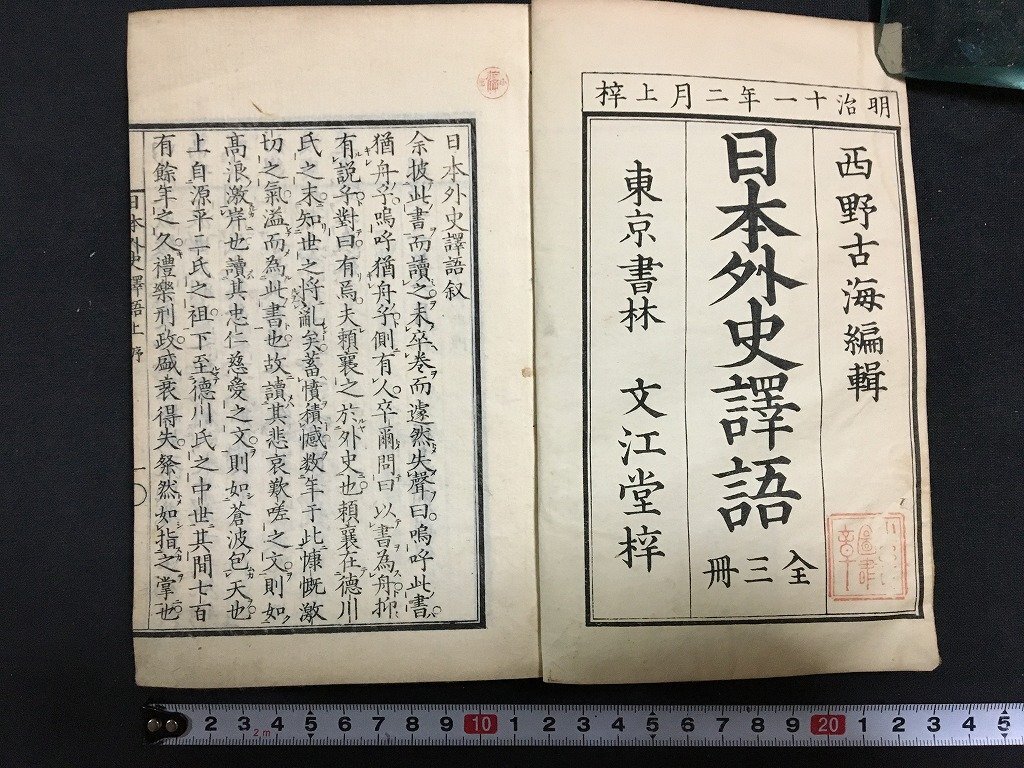 明治十一年二月上梓
西野古海編輯
日本外史譯語
全三冊
東京書林 文江堂梓
日本外史譯語叙
余披此書而讀之未卒卷而遽然失聲曰嗚呼此書
猶舟乎嗚呼猶舟乎側有人卒爾問曰以書為舟抑
有説乎對曰有焉夫頼襄之於外史也頼襄在德川
氏之末知世之將亂矣蓄憤積慽数年于此慷慨激
切之氣溢而為此書也故讀其悲哀歎嗟之文則如
髙浪激岸也讀其忠仁慈愛之文則如蒼波包天也
上自源平二氏之祖下至德川氏之中世其間七百
有餘年之久禮樂刑政盛衰得失粲然如指之掌也
日本外史譯語上 序 一
2 3 4 5 6 7 8 9 10 1 2 3 4 5 6 7 8 9 20 1 2 3 4 5
2m